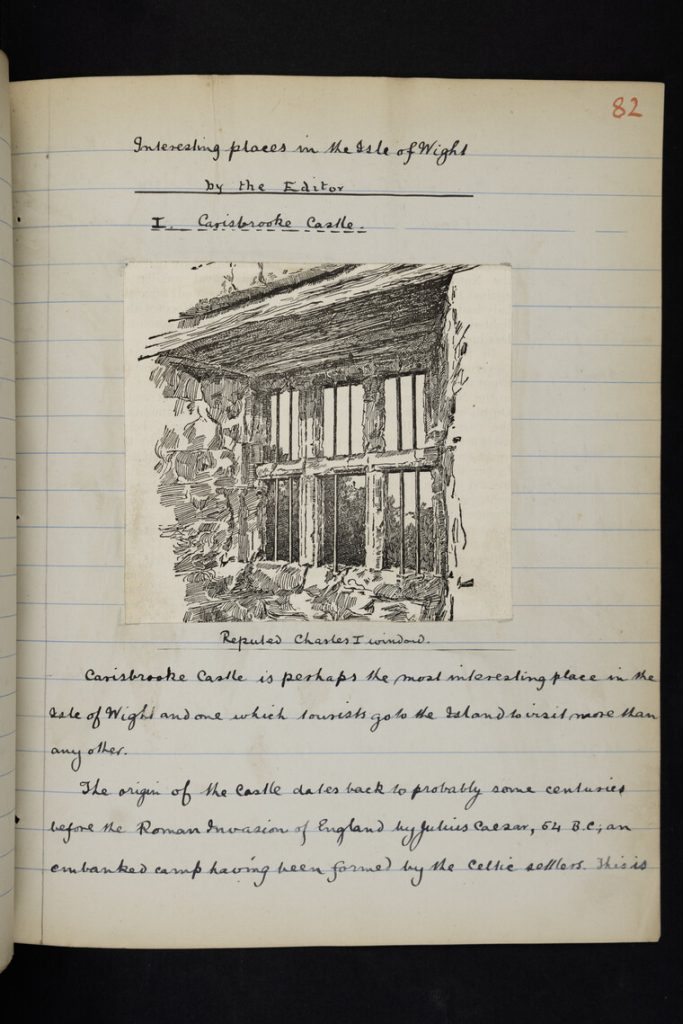 82
Interesting places in the Isle of Wight
by the Editor
I. Carisbrooke Castle.
Reputed Charles I window.
Carisbrooke Castle is perhaps the most interesting place in the
Isle of Wight and one which tourists go to the Island to visit more than
any other.
The origin of the Castle dates back to probably some centuries
before the Roman Invasion of England by Julius Caesar, 54 B.C; an
embanked camp having been formed by the Celtic settlers. This is